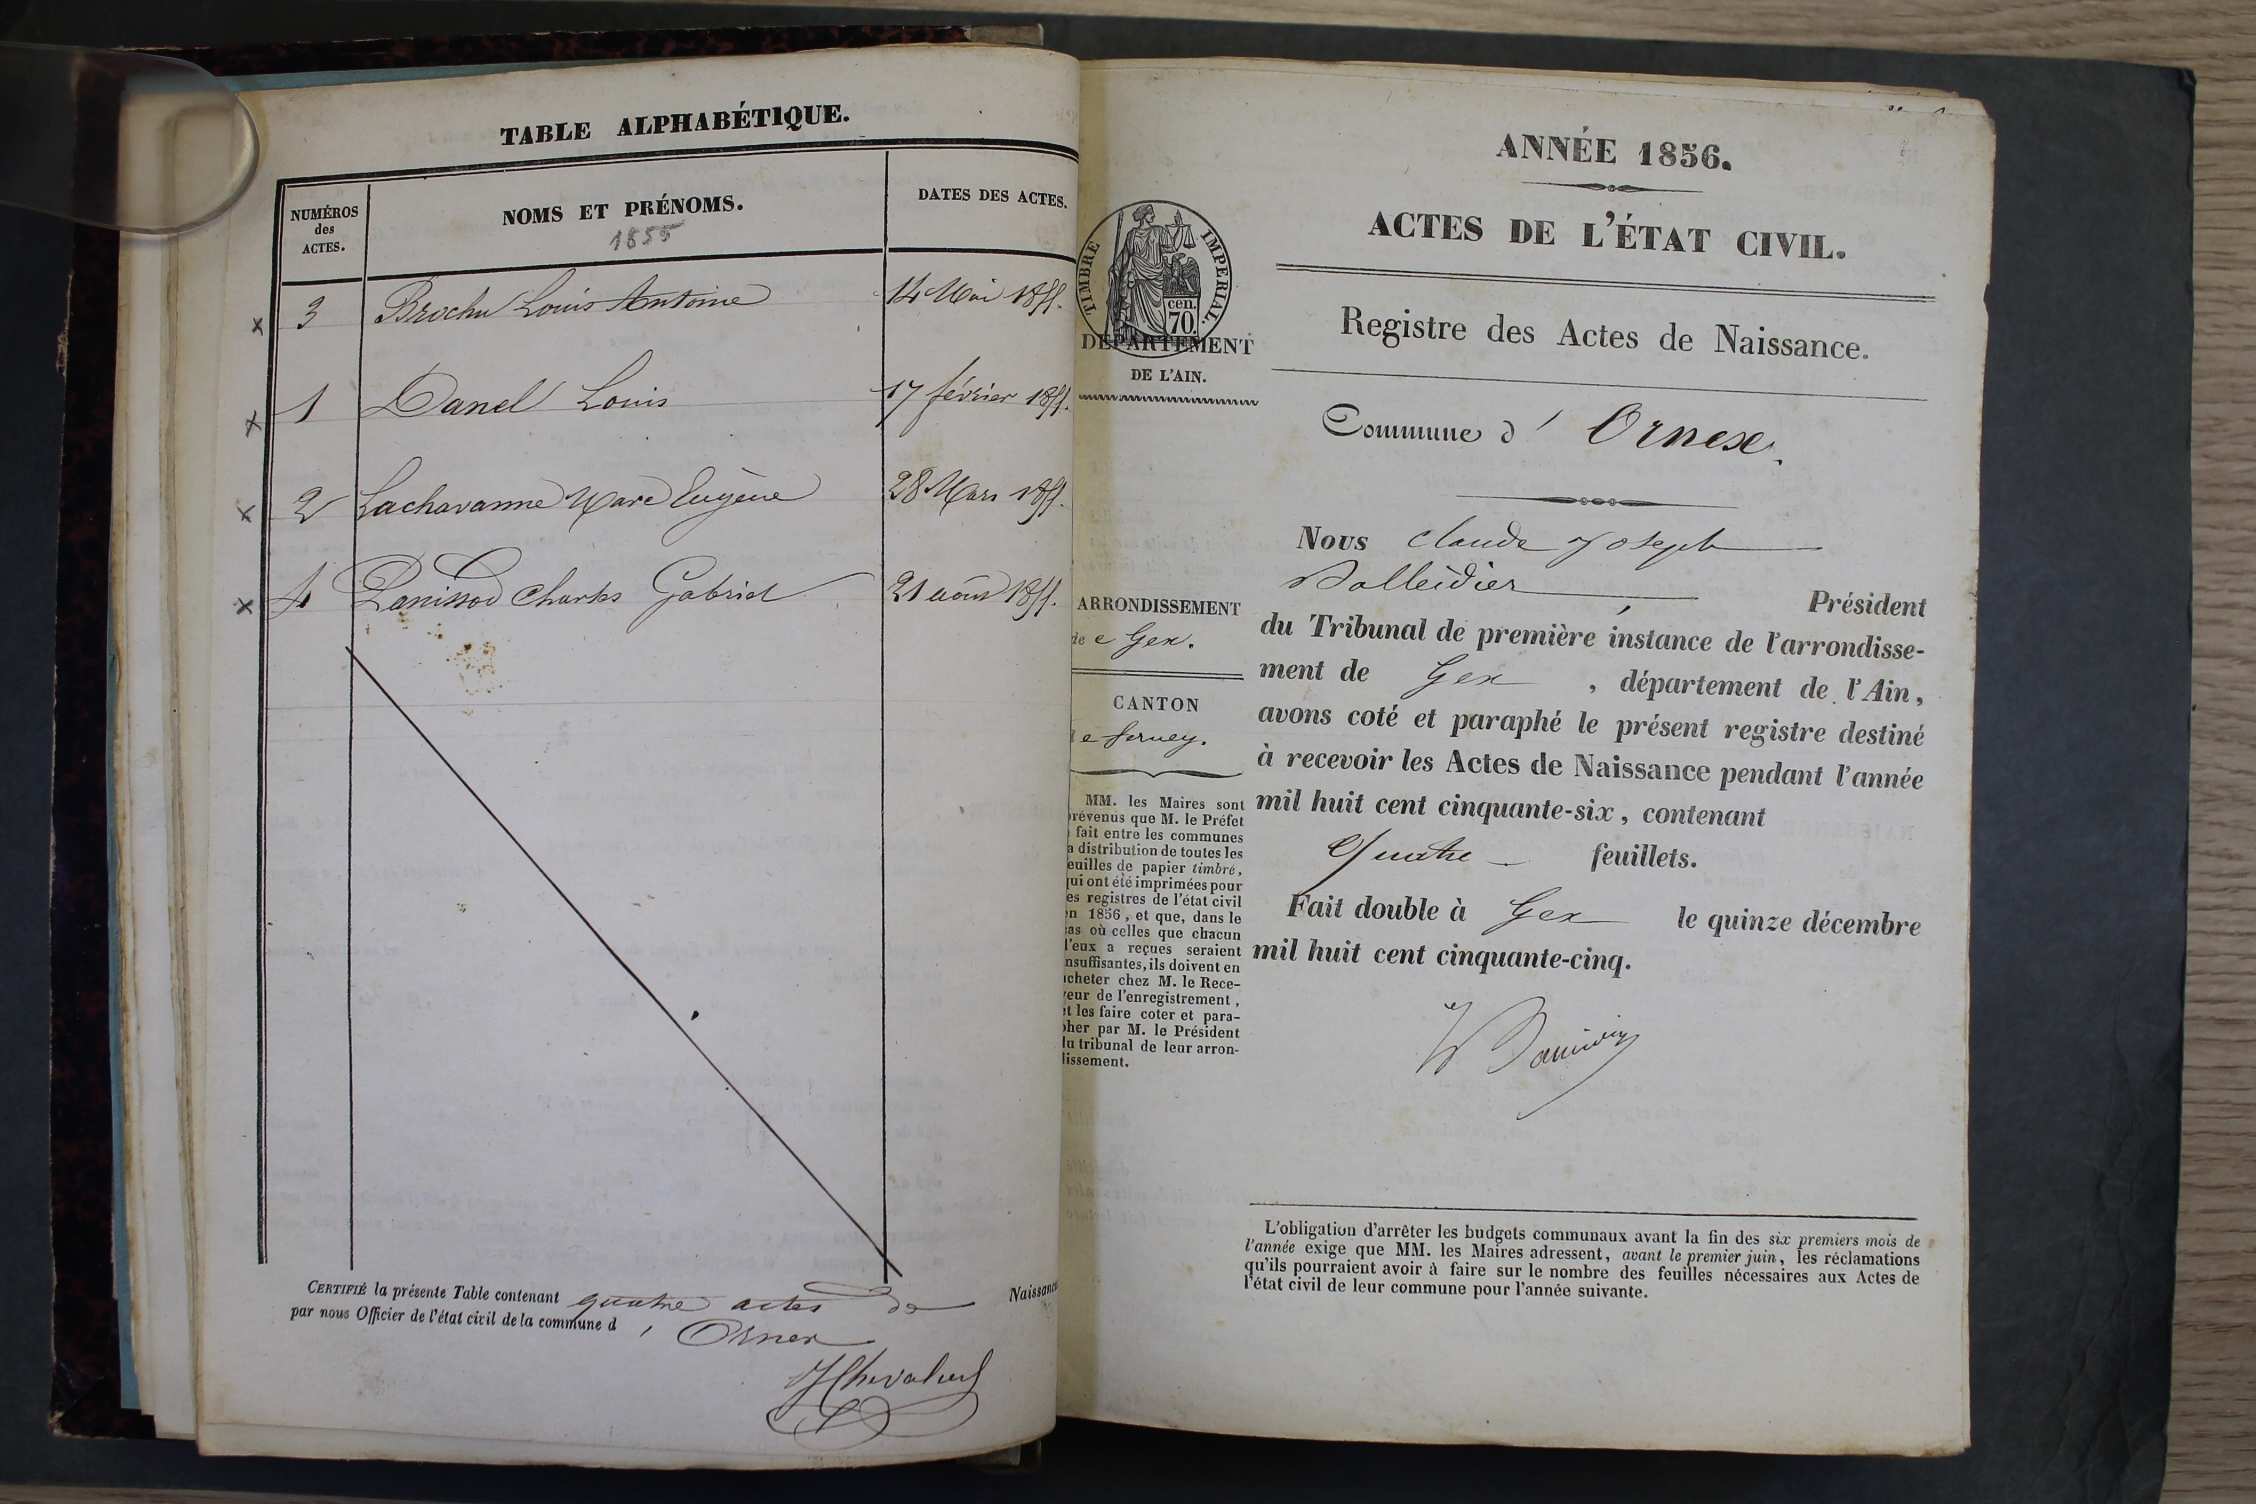 TABLE ALPHABÉTIQUE.
NUMÉROS
des
ACTES.
NOMS ET PRÉNOMS.
1855
DATES DES ACTES.
3 Brochu Louis Antoine 14 Mai 1855.
1 Danel Louis 17 février 1855.
2 Lachavanne Marc Eugène 28 Mars 1855.
4 Panissod Charles Gabriel 21 août 1855.
CERTIFIÉ la présente Table contenant quatre actes de Naissance
par nous Officier de l'état civil de la commune d' Ornex
JChevalier
TIMBRE IMPERIAL.
70 cen.
DÉPARTEMENT
DE L'AIN.
ARRONDISSEMENT
de Gex.
CANTON
de ferney.
MM. les Maires sont
prévenus que M. le Préfet
fait entre les communes
la distribution de toutes les
feuilles de papier timbré,
qui ont été imprimées pour
les registres de l'état civil
en 1856, et que, dans le
cas où celles que chacun
d'eux a reçues seraient
insuffisantes, ils doivent en
acheter chez M. le Rece-
veur de l'enregistrement,
et les faire coter et para-
pher par M. le Président
du tribunal de leur arron-
dissement.
ANNÉE 1856.
ACTES DE L'ÉTAT CIVIL.
Registre des Actes de Naissance.
Commune d' Ornex.
Nous Claude Joseph
Balleidier Président
du Tribunal de première instance de l'arrondisse-
ment de Gex, département de l'Ain,
avons coté et paraphé le présent registre destiné
à recevoir les Actes de Naissance pendant l'année
mil huit cent cinquante-six, contenant
Quatre feuillets.
Fait double à Gex le quinze décembre
mil huit cent cinquante-cinq.
L'obligation d'arrêter les budgets communaux avant la fin des six premiers mois de
l'année exige que MM. les Maires adressent, avant le premier juin, les réclamations
qu'ils pourraient avoir à faire sur le nombre des feuilles nécessaires aux Actes de
l'état civil de leur commune pour l'année suivante.